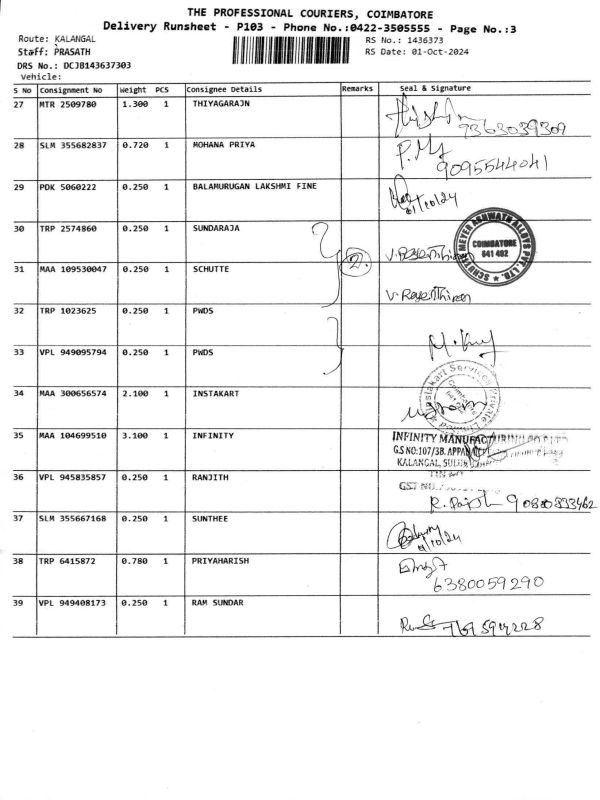 THE PROFESSIONAL COURIERS, COIMBATORE
Delivery Runsheet - P103 - Phone No.:0422-3505555 - Page No.:3
Route: KALANGAL
RS No.: 1436373
Staff: PRASATH
RS Date: 01-Oct-2024
DRS No.: DCJB143637303
Vehicle:
S No Consignment No Weight PCS Consignee Details Remarks Seal & Signature
27 MTR 2509780 1.300 1 THIYAGARAJN
9363039309
28 SLM 355682837 0.720 1 MOHANA PRIYA P.
9095544041
29 PDK 5060222 0.250 1 BALAMURUGAN LAKSHMI FINE
1/10/24
30 TRP 2574860 0.250 1 SUNDARAJA
2. COIMBATORE 641 402
31 MAA 109530047 0.250 1 SCHUTTE
32 TRP 1023625 0.250 1 PWDS
33 VPL 949095794 0.250 1 PWDS
34 MAA 300656574 2.100 1 INSTAKART
35 MAA 104699510 3.100 1 INFINITY INFINITY
G.S NO:107/3B,
KALANGAL,
36 VPL 945835857 0.250 1 RANJITH
GST NO.
37 SLM 355667168 0.250 1 SUNTHEE
1/10/24
38 TRP 6415872 0.780 1 PRIYAHARISH
6380059290
39 VPL 949408173 0.250 1 RAM SUNDAR